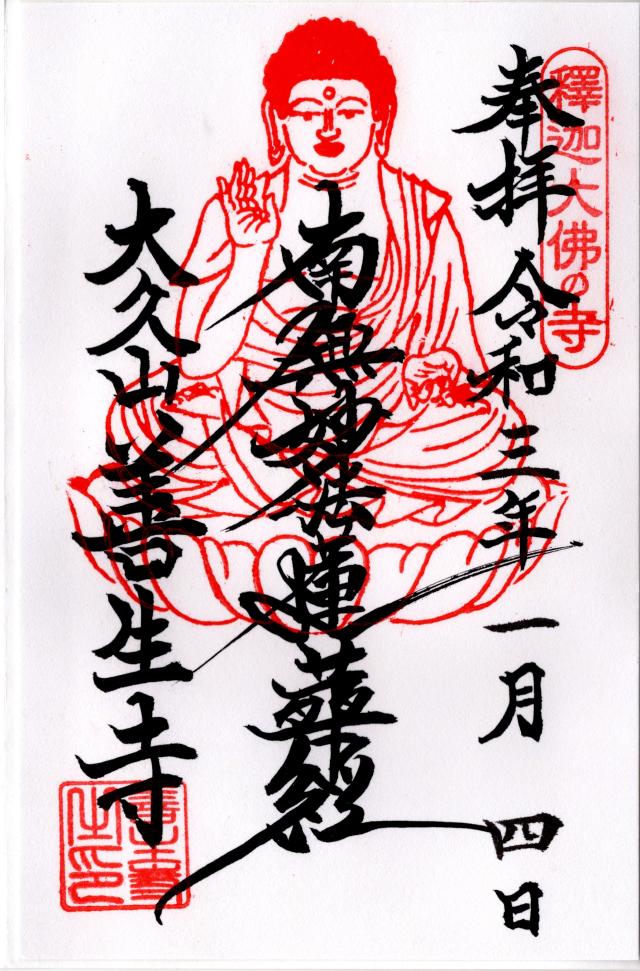 釋迦大佛の寺
奉拝 令和三年一月四日
南無妙法蓮華経
大久山 善生寺